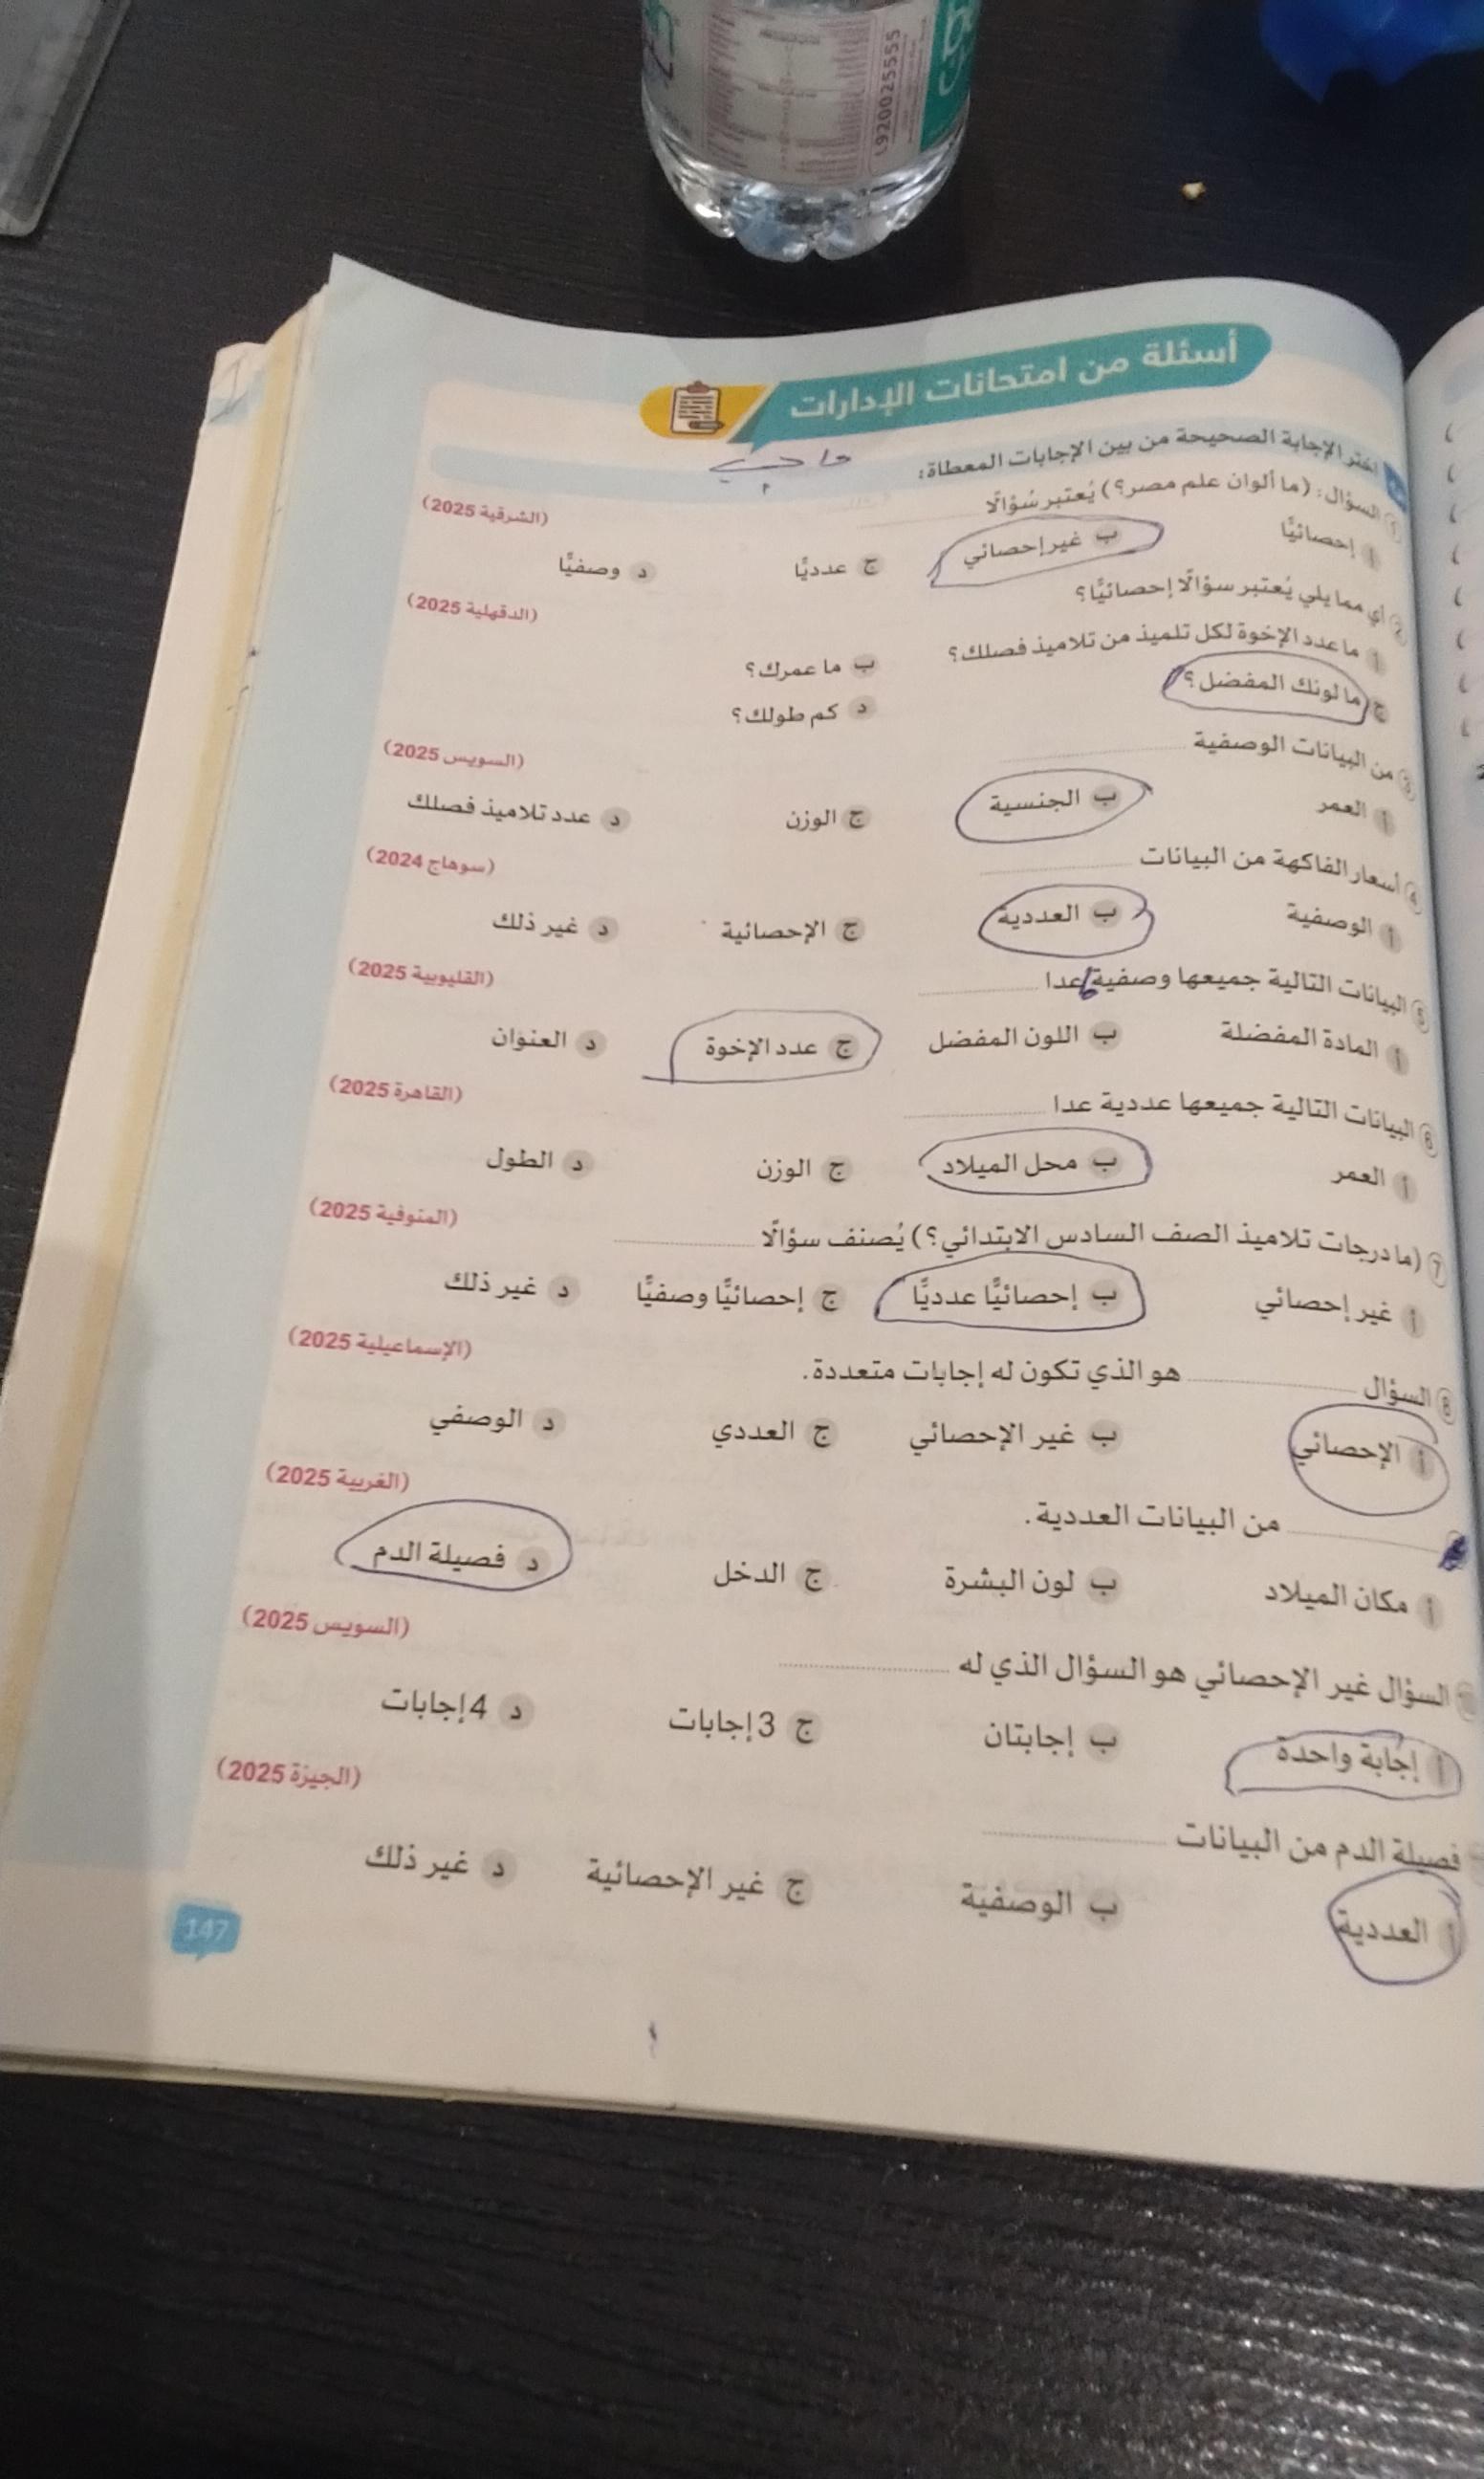 920025555
أسئلة من امتحانات الإدارات
اختر الإجابة الصحيحة من بين الإجابات المعطاة:
واجب
1 السؤال: (ما ألوان علم مصر؟) يُعتبر سُؤالًا (الشرقية 2025)
أ إحصائيًّا ب غير إحصائي ج عدديًّا د وصفيًّا
2 أي مما يلي يُعتبر سؤالًا إحصائيًّا؟ (الدقهلية 2025)
أ ما عدد الإخوة لكل تلميذ من تلاميذ فصلك؟ ب ما عمرك؟
ج ما لونك المفضل؟ د كم طولك؟
3 من البيانات الوصفية (السويس 2025)
أ العمر ب الجنسية ج الوزن د عدد تلاميذ فصلك
4 أسعار الفاكهة من البيانات (سوهاج 2024)
أ الوصفية ب العددية ج الإحصائية د غير ذلك
5 البيانات التالية جميعها وصفية عدا (القليوبية 2025)
أ المادة المفضلة ب اللون المفضل ج عدد الإخوة د العنوان
6 البيانات التالية جميعها عددية عدا (القاهرة 2025)
أ العمر ب محل الميلاد ج الوزن د الطول
7 (ما درجات تلاميذ الصف السادس الابتدائي؟) يُصنف سؤالًا (المنوفية 2025)
أ غير إحصائي ب إحصائيًّا عدديًّا ج إحصائيًّا وصفيًّا د غير ذلك
8 السؤال هو الذي تكون له إجابات متعددة. (الإسماعيلية 2025)
أ الإحصائي ب غير الإحصائي ج العددي د الوصفي
من البيانات العددية. (الغربية 2025)
أ مكان الميلاد ب لون البشرة ج الدخل د فصيلة الدم
السؤال غير الإحصائي هو السؤال الذي له (السويس 2025)
أ إجابة واحدة ب إجابتان ج 3 إجابات د 4 إجابات
فصيلة الدم من البيانات (الجيزة 2025)
أ العددية ب الوصفية ج غير الإحصائية د غير ذلك
147